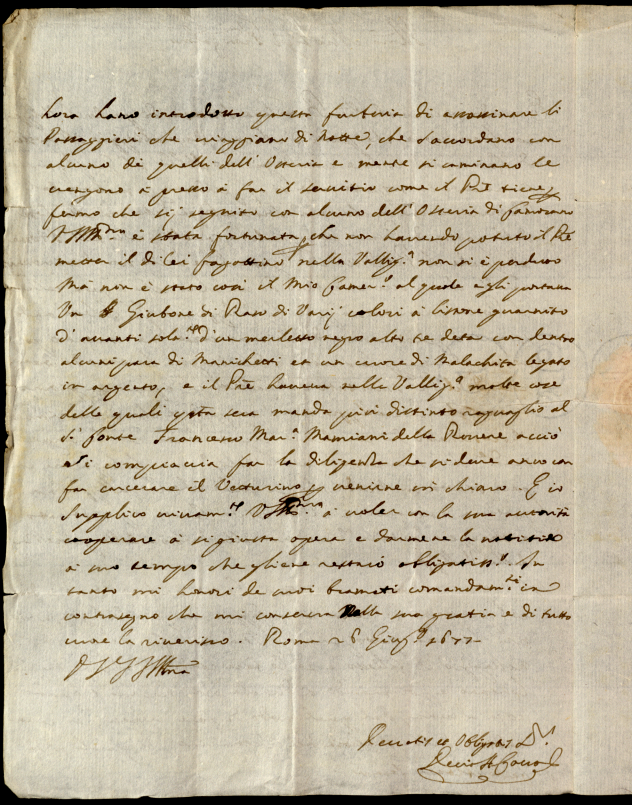 hora hano introdotto questa furberia di assassinare li
Passaggieri che viaggiano di Notte, che s'accordano con
alcuno di quelli dell' Osteria e mentre si caminano le
vengono a presso a far il servitio come il Pre tiene
fermo che sij seguito con alcuno dell' Osteria di
è stata fortunata, che non havendo potuto il Pre
metter il di Lei fagottino nella Vallig.a non si è perduto
Ma non è stato così il Mio Camer.e al quale egli portava
Un Giubone di Raso di Varij colori à guarnito
d'avanti sola.te d'un merletto negro alto tre deta con dentro
alcuni para di Manichetti et un cuore di Malachita legato
in argento, e il Pre haveva nella Vallig.a molte cose
delle quali qsta sera manda più distinto raguaglio al
S.r Conte Francesco Mar.a Mamiani della Rovere acciò
si compiaccia far la diligenza che si deve anco con
far carcerare il Vetturino p venirne in chiaro. E io
supplico vivam.te à voler con la sua autorità
cooperare à si giusta opera e darmene la notitia
à suo tempo che gliene restarò obligatiss.o In
tanto mi honori de suoi bramati comandam.ti in
contrasegno che mi conserva nella sua gratia e di tutto
cuore la riverisco. Roma 26 Giug.o 1677
Devotis et Obligatis
Decio